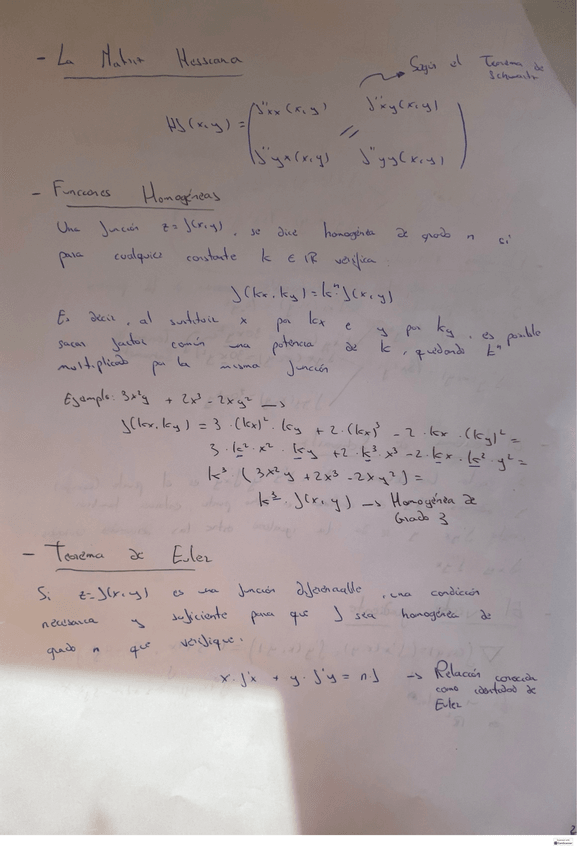 - La Matriz Hessiana
Según el Teorema de
Schwartz
Hf(x,y) = ( f''xx(x,y) f''xy(x,y)
f''yx(x,y) f''yy(x,y) )
- Funciones Homogéneas
Una función z=f(x,y), se dice homogénea de grado n si
para cualquier constante k ∈ IR verifica
f(kx,ky)=kⁿ·f(x,y)
Es decir, al sustituir x por kx e y por ky, es posible
sacar factor común una potencia de k, quedando kⁿ
multiplicado por la misma función
Ejemplo: 3x²y + 2x³ - 2xy² →
f(kx,ky) = 3·(kx)²·ky + 2·(kx)³ - 2·kx·(ky)² =
3·k²·x²·ky + 2·k³·x³ - 2·kx·k²·y² =
k³ (3x²y + 2x³ - 2xy²) =
k³·f(x,y) → Homogénea de
Grado 3
- Teorema de Euler
Si z=f(x,y) es una función diferenciable, una condición
necesaria y suficiente para que f sea homogénea de
grado n que verifique:
x·f'x + y·f'y = n·f → Relación conocida
como identidad de
Euler
2